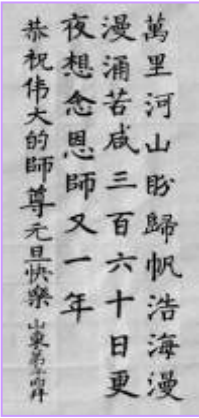 萬里河山盼歸帆浩海漫
漫涌苦咸三百六十日更
夜想念恩師又一年
恭祝伟大的師尊元旦快樂山東弟子